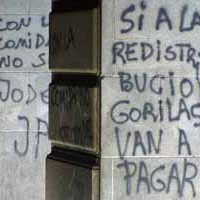 CON L
COMIDA
NO S
JODE
SI A LA
REDISTRI
BUCIO
GORILAS
VAN A
PAGAR